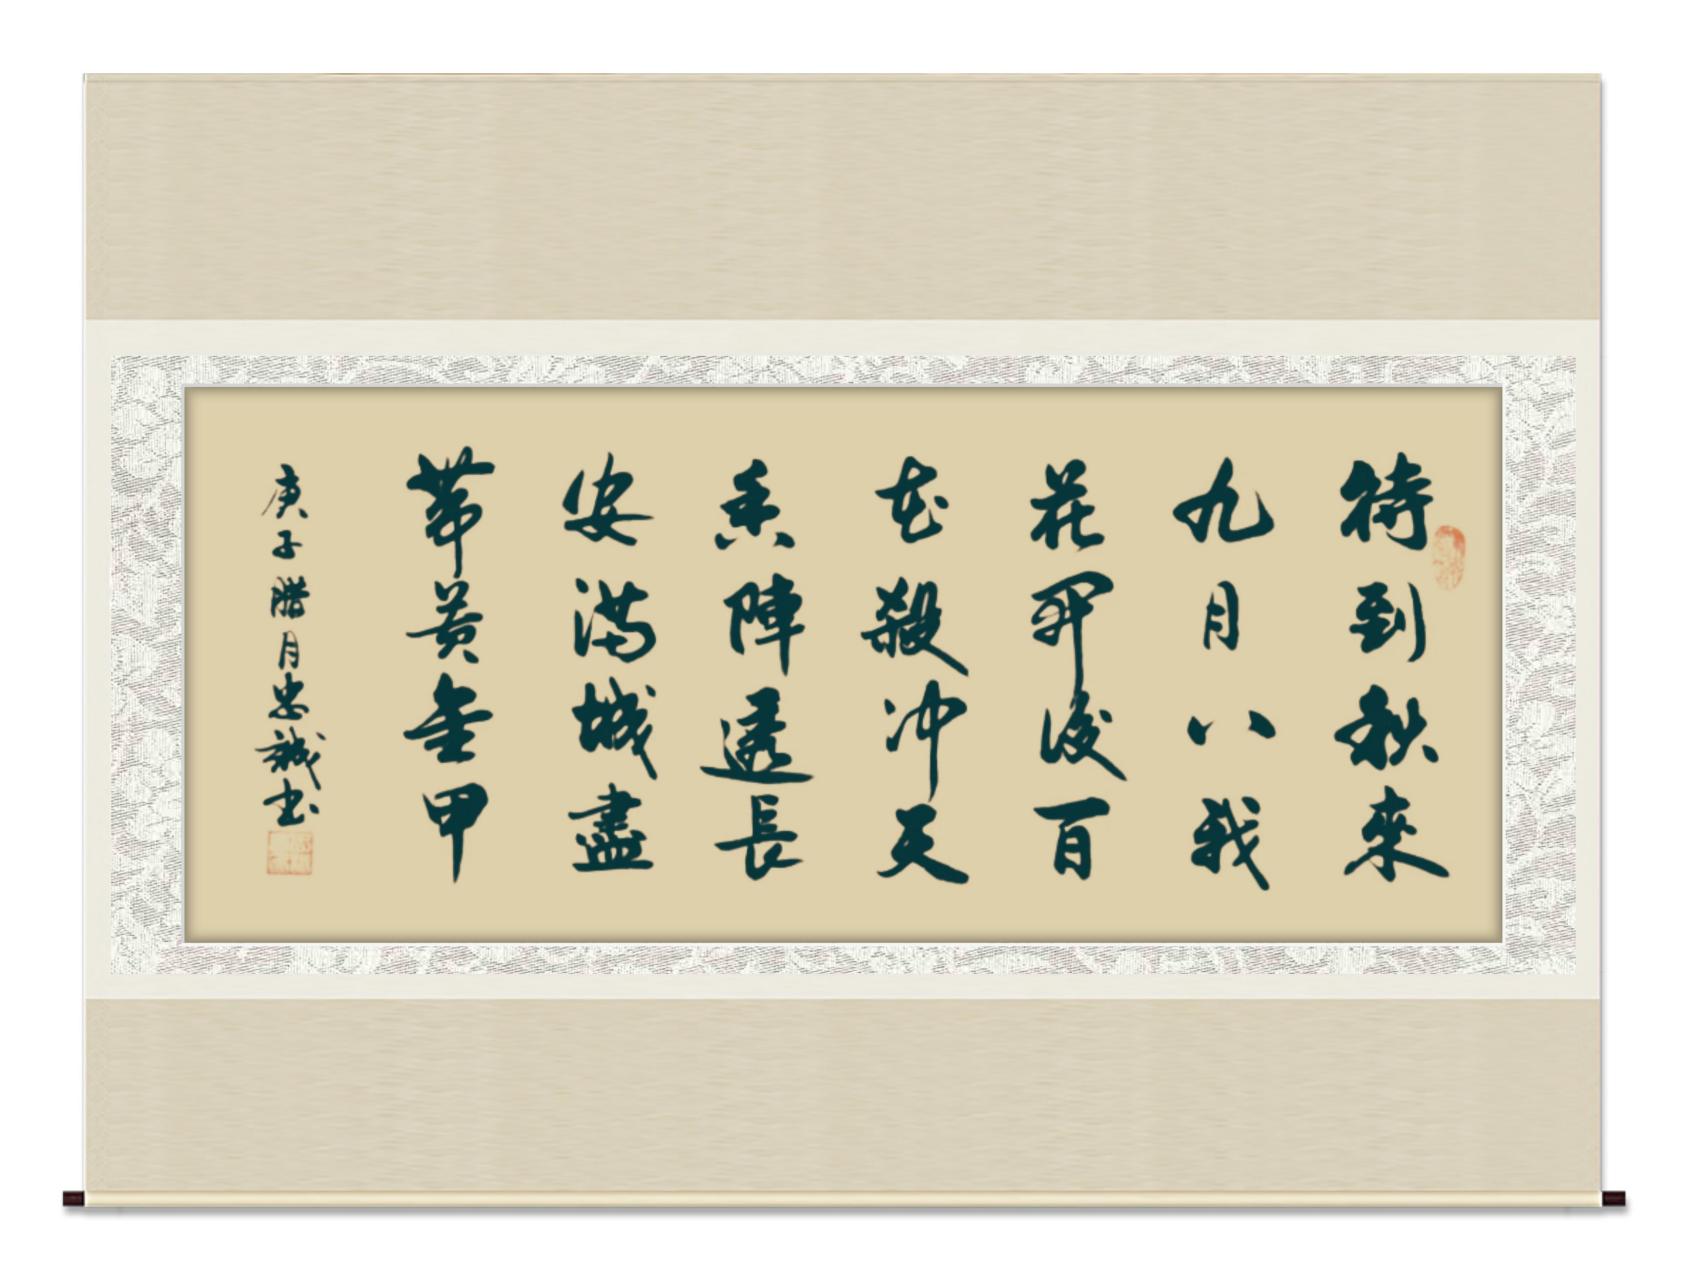 待到秋來
九月八我
花開後百
花殺冲天
香陣透長
安滿城盡
帶黃金甲
庚子腊月忠誠书